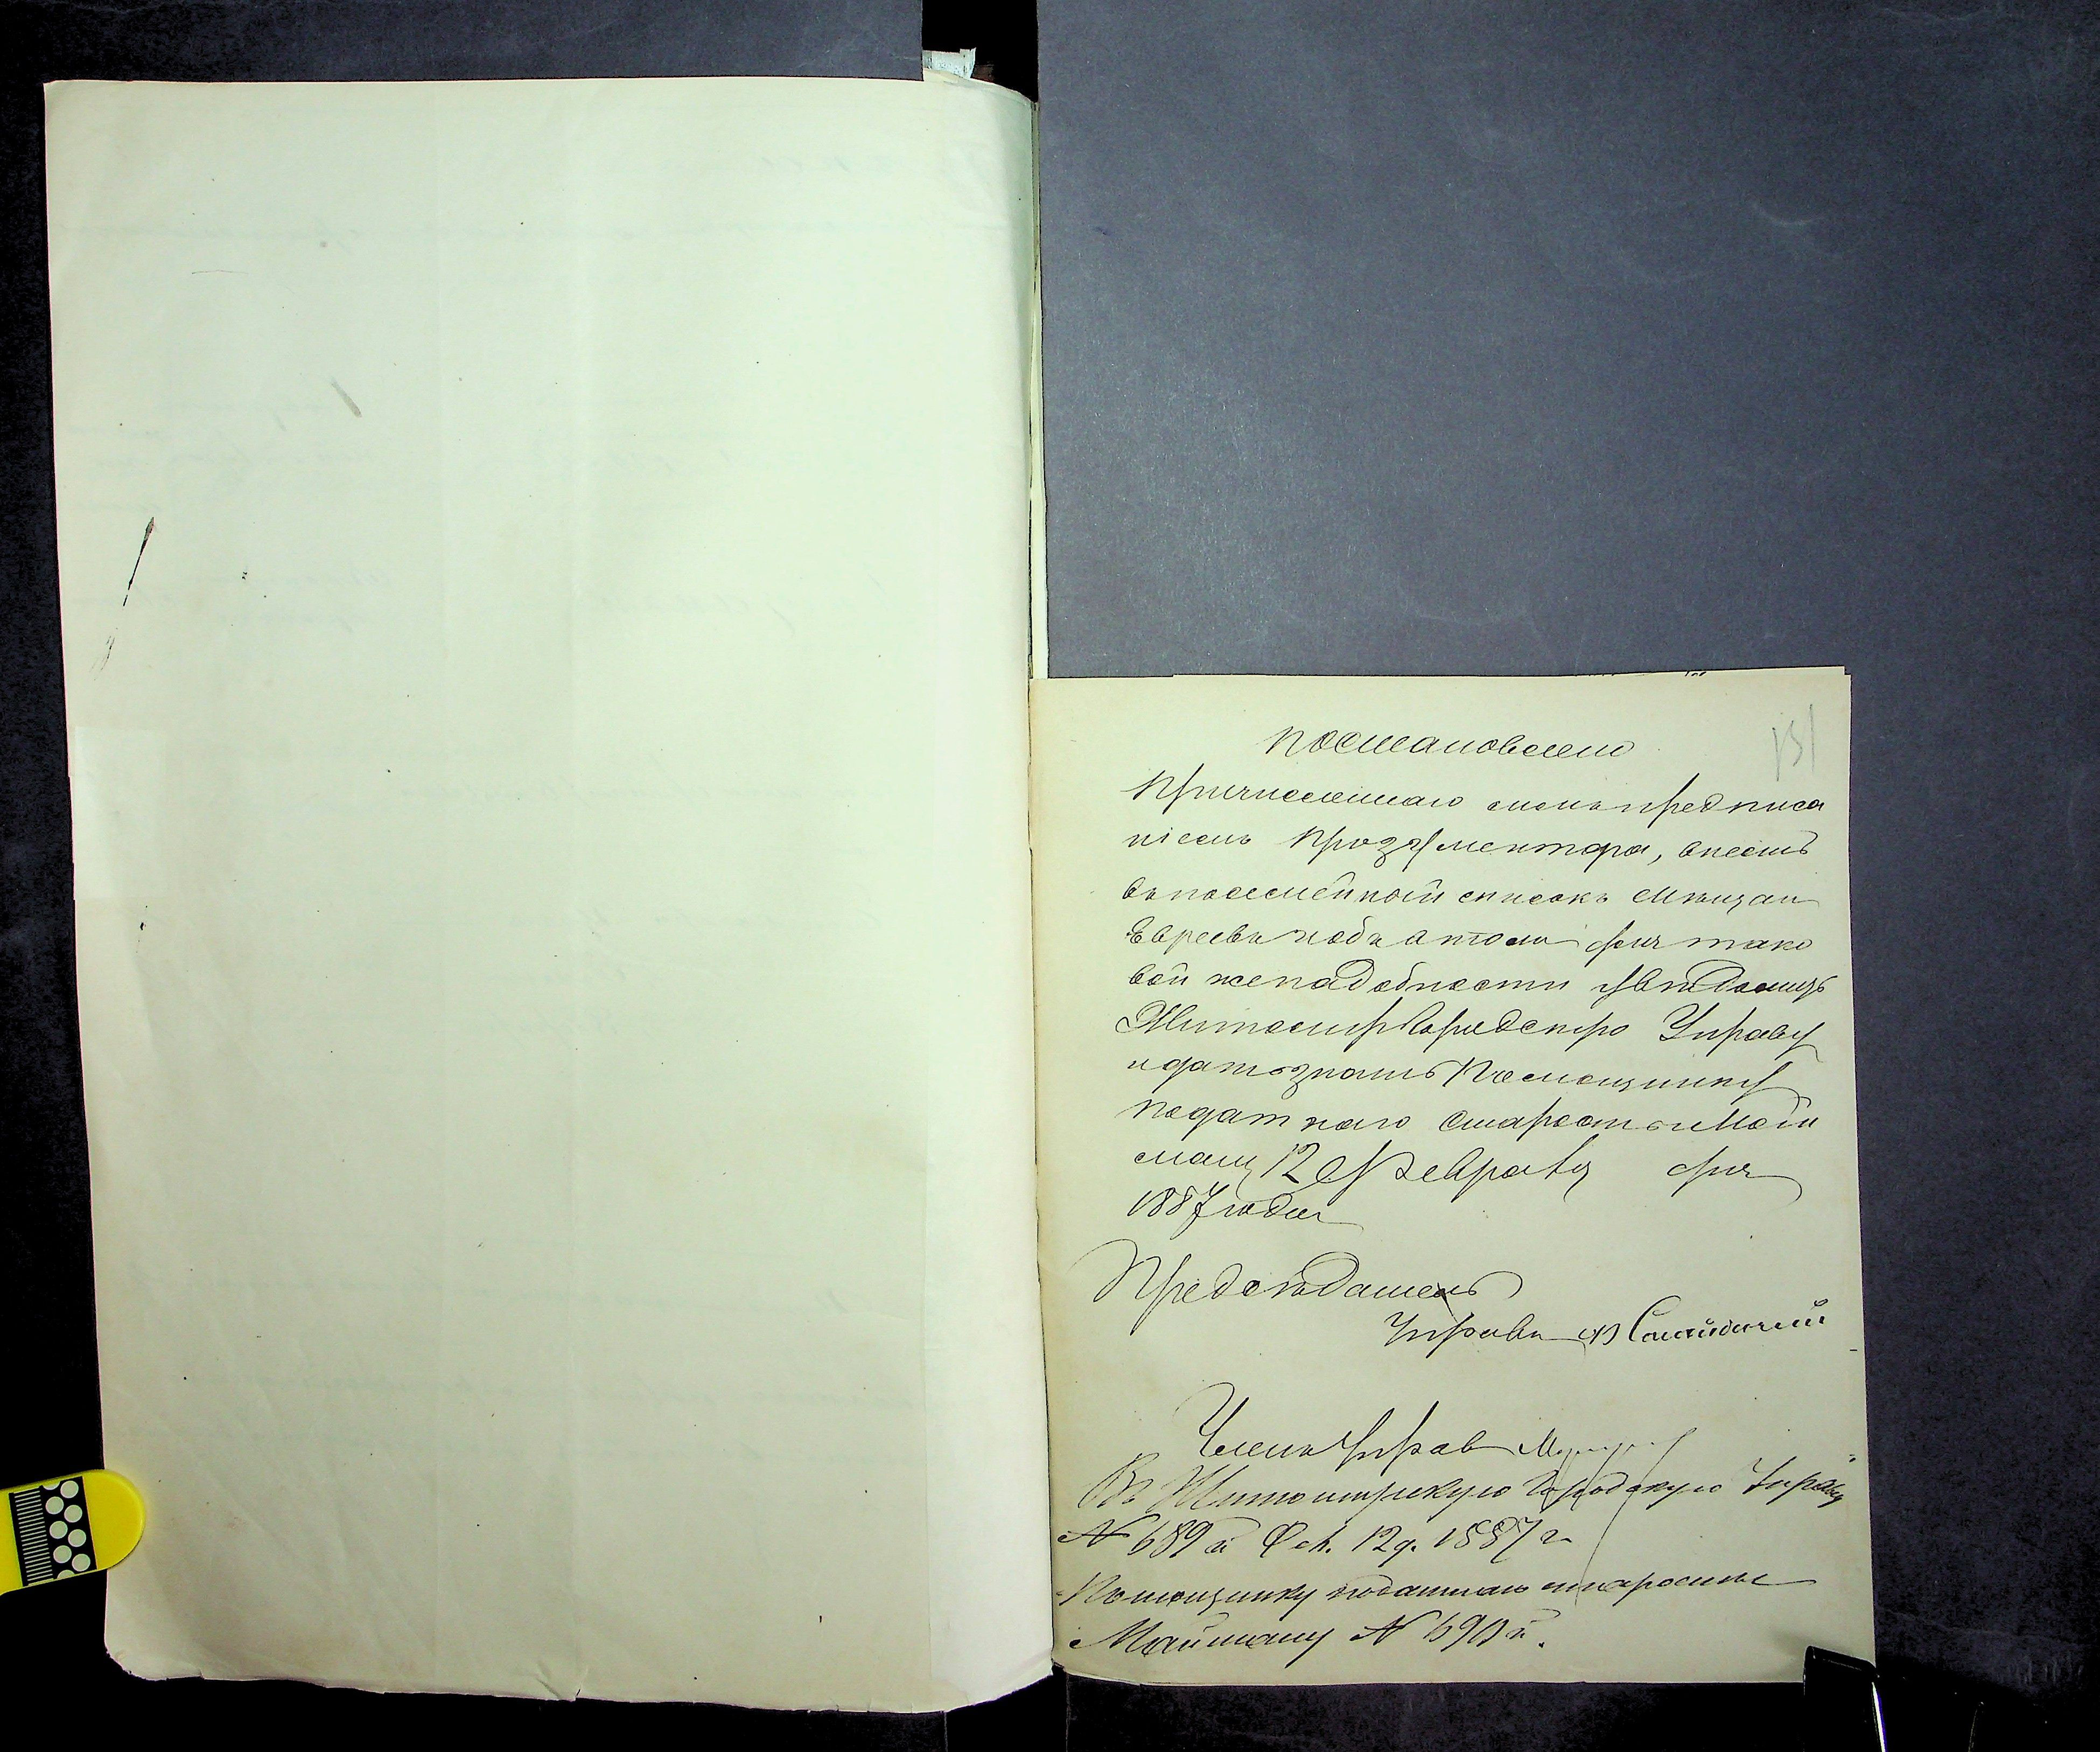 131
Постановлено
Причисленнаго симъ предписа
ніемъ Прозументора, внесть
въ посемейный списокъ Мѣщан
Евреевъ подъ а томъ для тако
вой же надобности увѣдомить
Житомир Городскую Управу
и дать знать Помощнику
податнаго старосты Май
ману 12 Февраля дня
1887 года
Предсѣдатель
Управы
Членъ Управ
Въ Житомирскую Городскую Управу
№ 689 й Фев. 12 д. 1887 г.
Помощнику податнаго старосты
Майману № 690 й.